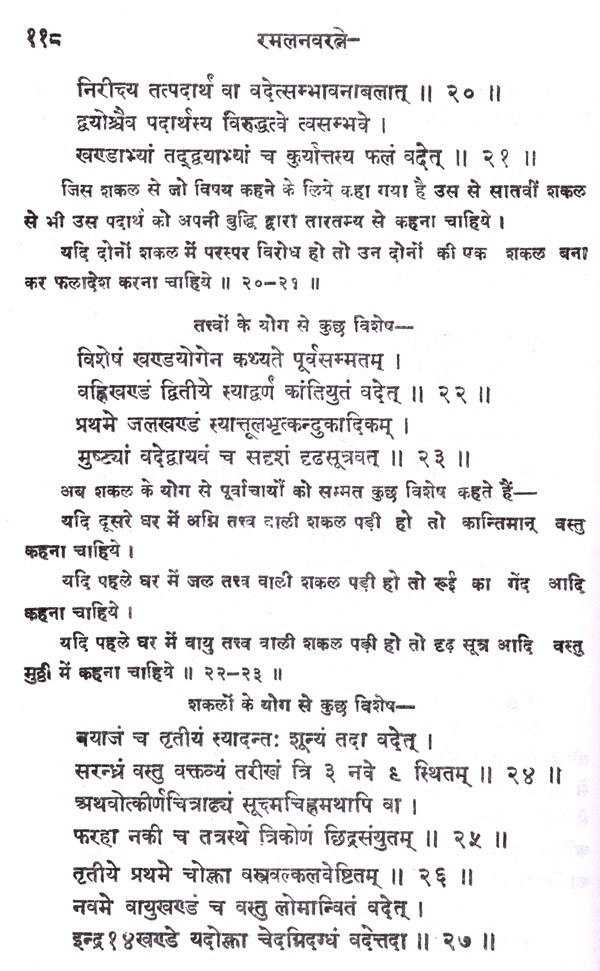 ११८ रमलनवरत्ने–
निरीक्ष्य तत्पदार्थं वा वदेत्सम्भावनाबलात् ॥ २० ॥
द्वयोश्चैव पदार्थस्य विरुद्धत्वे त्वसम्भवे ।
खण्डाभ्यां तद्द्वयाभ्यां च कुर्यात्तस्य फलं वदेत् ॥ २१ ॥
जिस शकल से जो विषय कहने के लिये कहा गया है उस से सातवीं शकल
से भी उस पदार्थ को अपनी बुद्धि द्वारा तारतम्य से कहना चाहिये ।
यदि दोनों शकल में परस्पर विरोध हो तो उन दोनों की एक शकल बना
कर फलादेश करना चाहिये ॥ २०–२१ ॥
तत्त्वों के योग से कुछ विशेष—
विशेषं खण्डयोगेन कथ्यते पूर्वसम्मतम् ।
वह्निखण्डं द्वितीये स्याद्वर्णं कांतियुतं वदेत् ॥ २२ ॥
प्रथमे जलखण्डं स्यात्तूलभृत्कन्दुकादिकम् ।
मुष्ट्यां वदेद्वायवं च सदृशं दृढसूत्रवत् ॥ २३ ॥
अब शकल के योग से पूर्वाचार्यों को सम्मत कुछ विशेष कहते हैं—
यदि दूसरे घर में अग्नि तत्त्व वाली शकल पड़ी हो तो कान्तिमान् वस्तु
कहना चाहिये ।
यदि पहले घर में जल तत्त्व वाली शकल पड़ी हो तो रूई का गेंद आदि
कहना चाहिये ।
यदि पहले घर में वायु तत्त्व वाली शकल पड़ी हो तो दृढ़ सूत्र आदि वस्तु
मुट्ठी में कहना चाहिये ॥ २२–२३ ॥
शकलों के योग से कुछ विशेष—
बयाजं च तृतीयं स्यादन्तः शून्यं तदा वदेत् ।
सरन्ध्रं वस्तु वक्तव्यं तरीखं त्रि ३ नवे ९ स्थितम् ॥ २४ ॥
अथवोत्कीर्णचित्राढ्यं सूक्ष्मचिह्नमथापि वा ।
फरहा नकी च तत्रस्थे त्रिकोणं छिद्रसंयुतम् ॥ २५ ॥
तृतीये प्रथमे चोक्ता वस्त्रवल्कलवेष्टितम् ॥ २६ ॥
नवमे वायुखण्डं च वस्तु लोमान्वितं वदेत् ।
इन्द्र१४खण्डे यदोक्ला चेदग्निदग्धं वदेत्तदा ॥ २७ ॥